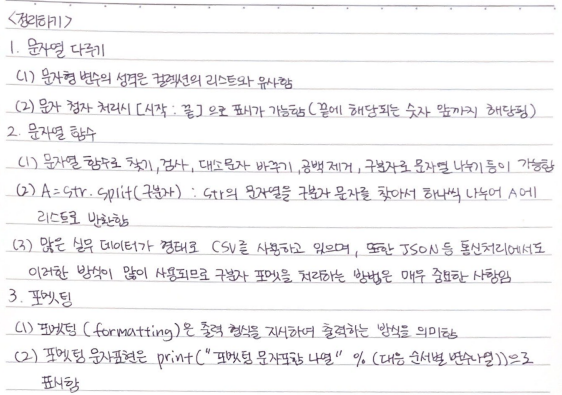 <정리하기>
1. 문자열 다루기
(1) 문자형 변수의 성격은 컬렉션의 리스트와 유사함
(2) 문자 첨자 처리시 [시작 : 끝] 으로 표시가 가능함 (끝에 해당되는 숫자 앞까지 해당됨)
2. 문자열 함수
(1) 문자열 함수로 찾기, 검사, 대소문자 바꾸기, 공백 제거, 구분자로 문자열 나누기 등이 가능함
(2) A = str. split(구분자) : str의 문자열을 구분자 문자를 찾아서 하나씩 나누어 A에
리스트로 반환함
(3) 많은 실무 데이터가 형태로 CSV를 사용하고 있으며, 또한 JSON 등 통신처리에서도
이러한 방식이 많이 사용되므로 구분자 포맷을 처리하는 방법은 매우 중요한 사항임
3. 포맷팅
(1) 포맷팅 (formatting)은 출력 형식을 지시하여 출력하는 방식을 의미함
(2) 포맷팅 문자표현은 print("포맷팅 문자포함 나열" % (대응 순서별 변수나열))으로
표시함